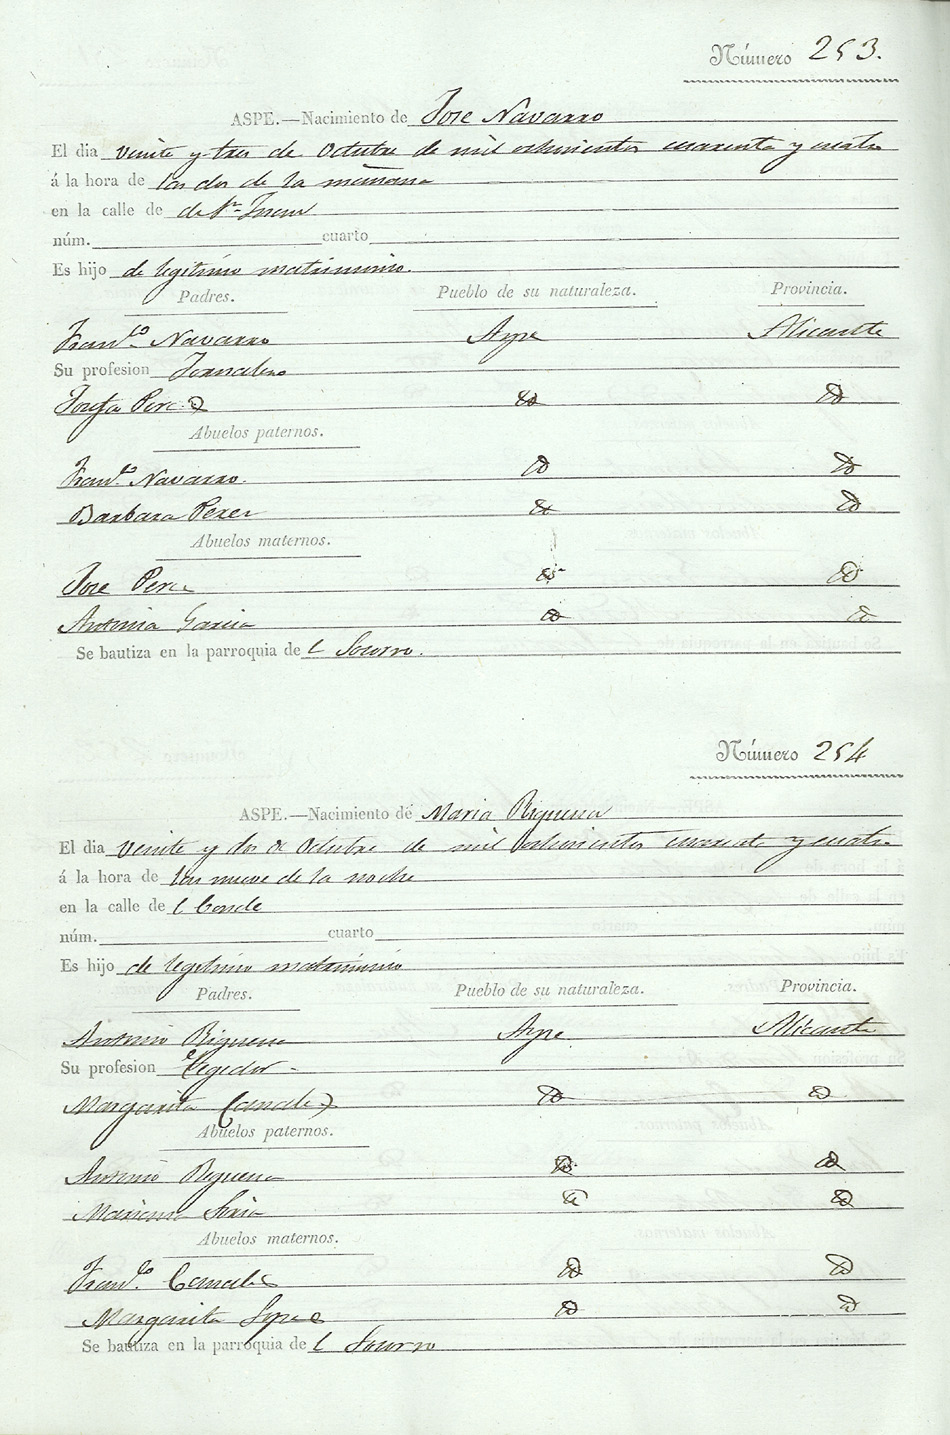 Número 253.
ASPE.—Nacimiento de Jose Navarro
El dia veinte y tres de Octubre de mil ochocientos cuarenta y cuatro
á la hora de las dos de la mañana
en la calle de de Sn. Juan
núm. cuarto
Es hijo de legitimo matrimonio.
Padres. Pueblo de su naturaleza. Provincia.
Franco. Navarro Aspe Alicante
Su profesion Jornalero
Josefa Perez id id
Abuelos paternos.
Franco. Navarro. id id
Barbara Perez id id
Abuelos maternos.
Jose Perez id id
Antonia Garcia id id
Se bautiza en la parroquia de l Socorro.
Número 254
ASPE.—Nacimiento de Maria Riquena
El dia veinte y dos de Octubre de mil ochocientos cuarenta y cuatro
á la hora de las nueve de la noche
en la calle de l Conde
núm. cuarto
Es hijo de legitimo matrimonio
Padres. Pueblo de su naturaleza. Provincia.
Antonio Riquena Aspe Alicante
Su profesion Tegedor
Margarita Canales id id
Abuelos paternos.
Antonio Riquena id id
Mariana Soria id id
Abuelos maternos.
Franco. Canales id id
Margarita id id
Se bautiza en la parroquia de l Socorro